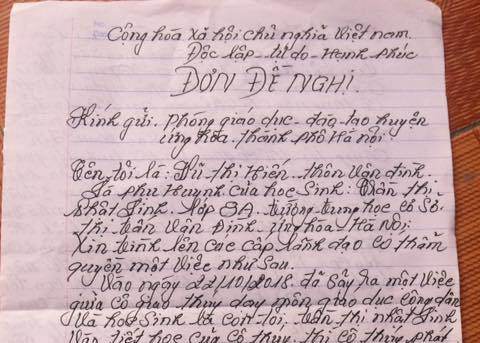 Cộng hòa xã hội chủ nghĩa Việt nam
Độc lập - tự do - Hạnh phúc
ĐƠN ĐỀ NGHỊ
Kính gửi. phòng giáo dục - đào tạo huyện
ứng hòa. thành phố Hà nội
Tên tôi là: Vũ thị Hiền - thôn vân đình.
Là phụ Huynh của học Sinh: Trần thị
nhất Linh. lớp 8A. trường trung học cơ Sở
thị trấn Vân Đình - ứng hòa Hà Nội
Xin trình lên các cấp lãnh đạo có thẩm
quyền một việc như Sau.
Vào ngày 22/10/2018 đã Sảy ra một việc
giữa cô giáo thủy dạy môn giáo dục công dân
và học Sinh là con tôi. trần thị nhất Linh
tiết học của cô thủy thì cô thủy phát